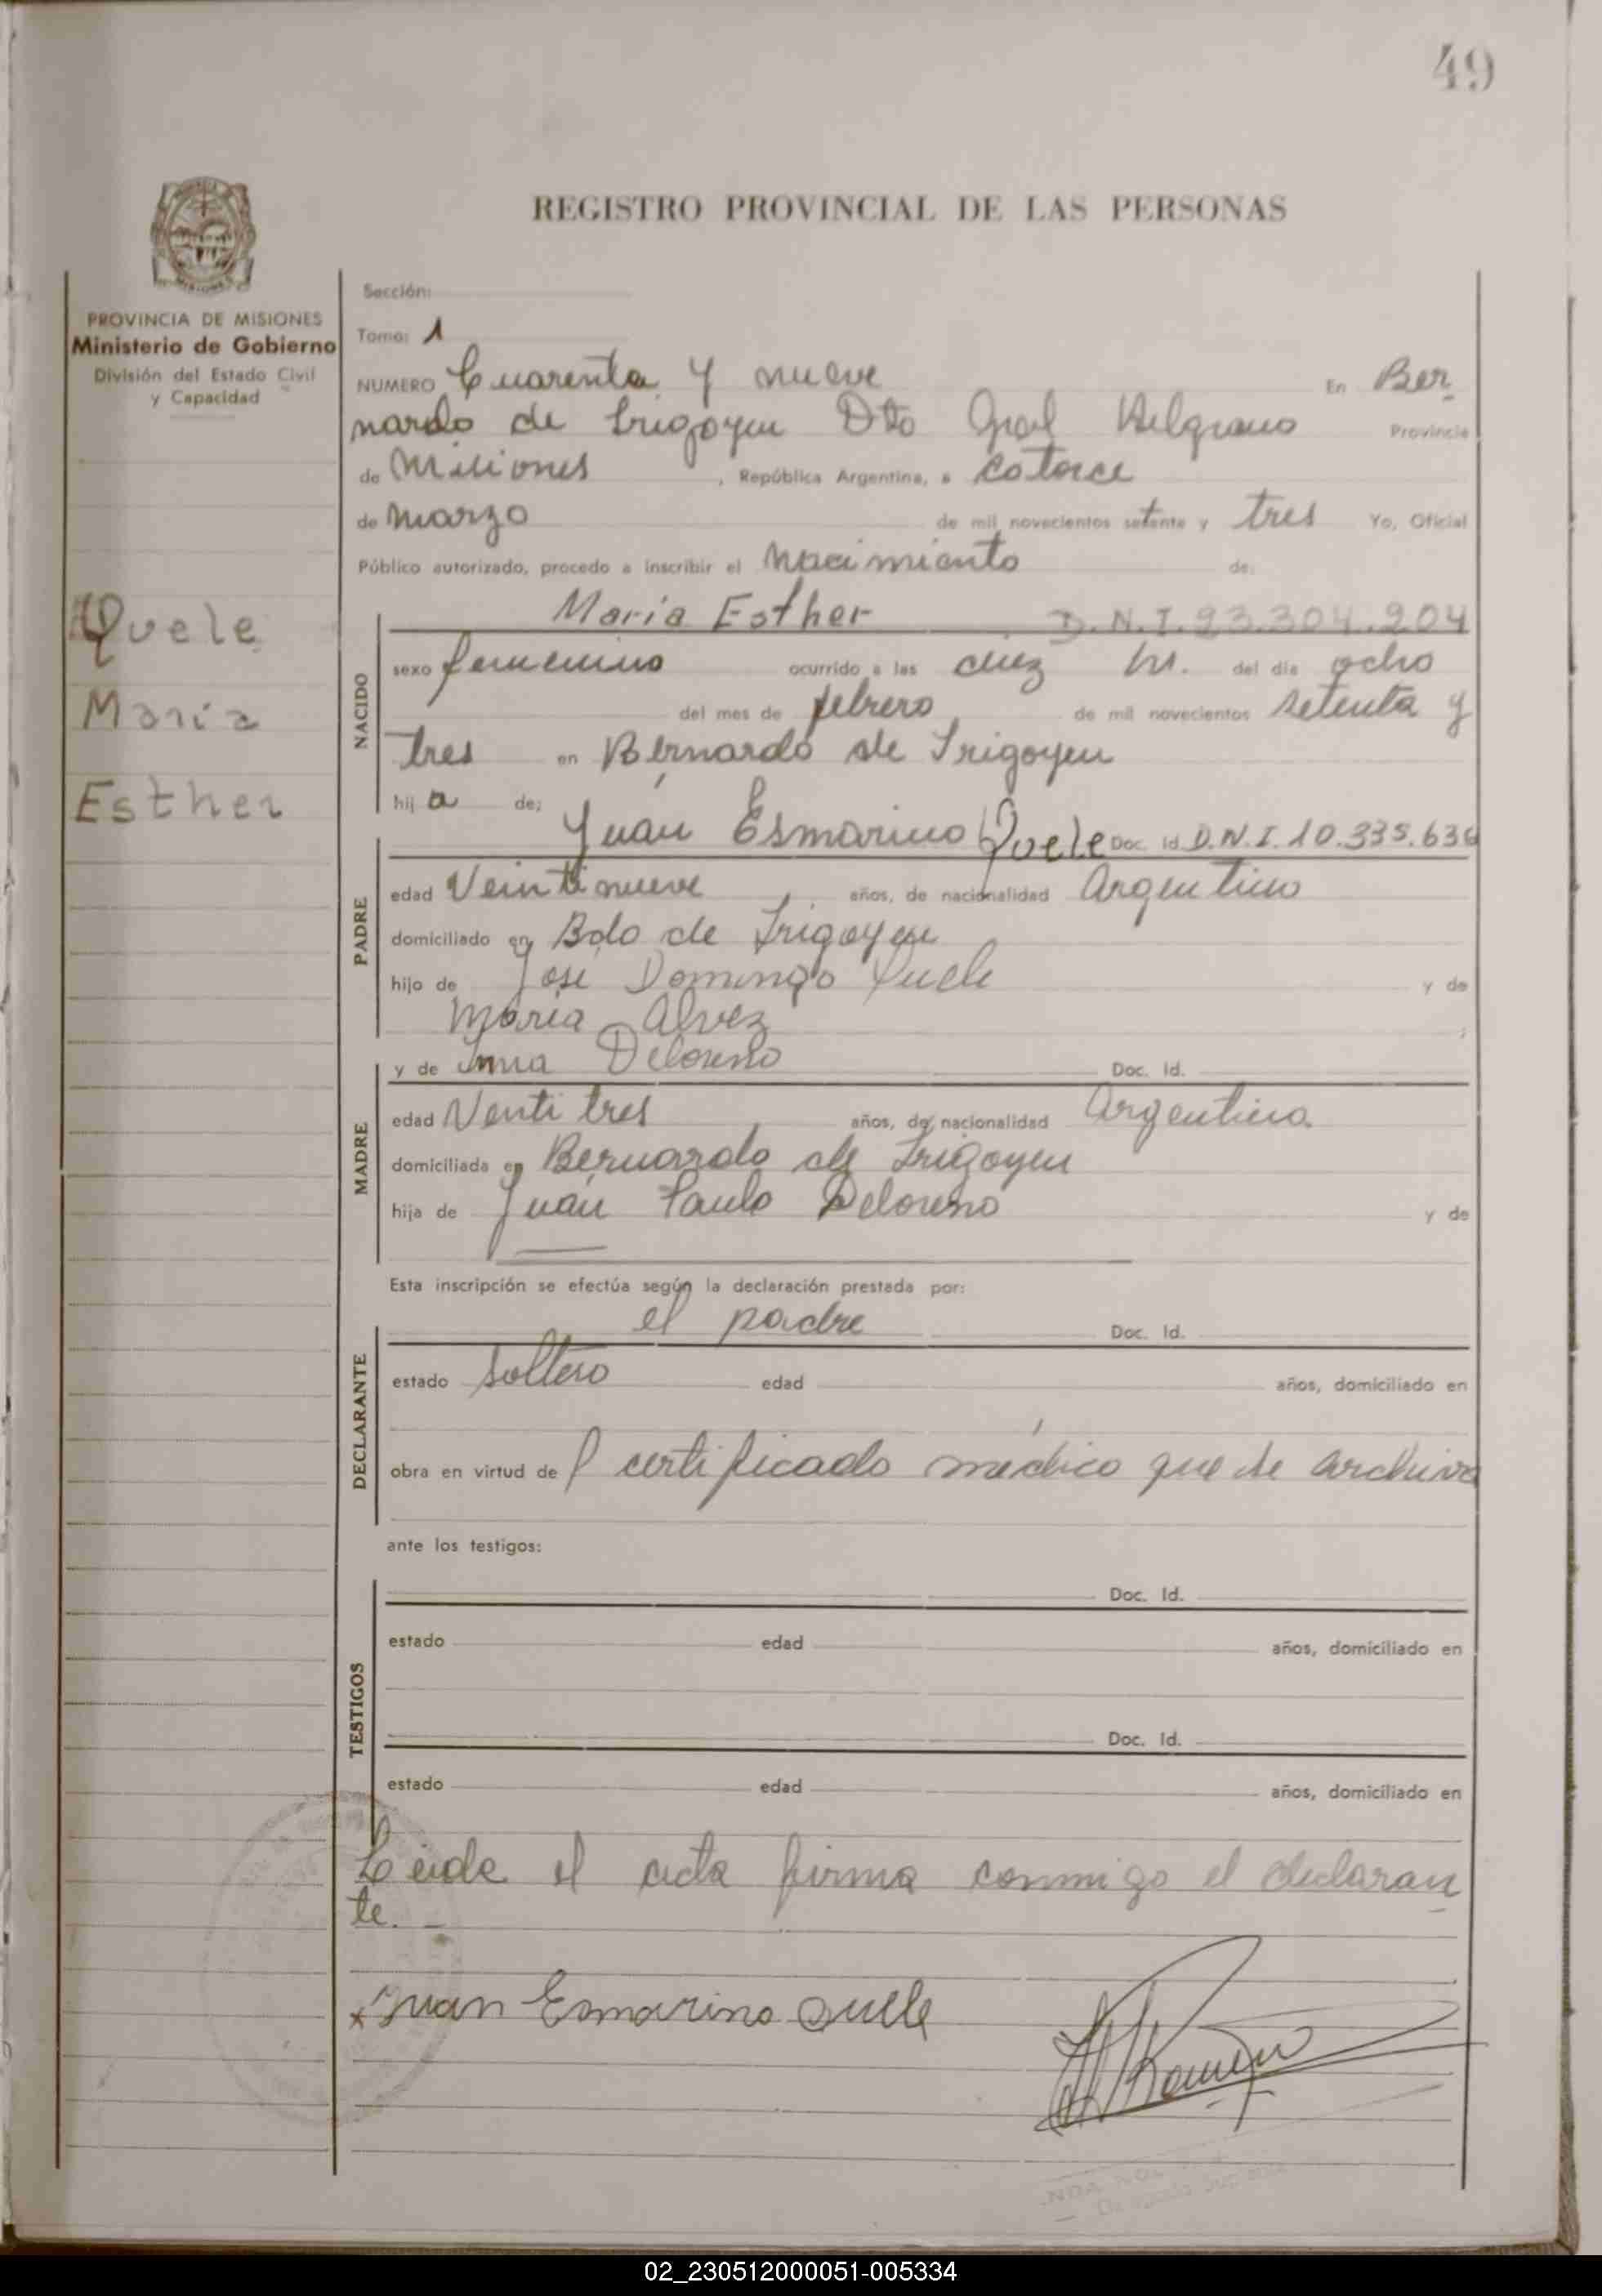 49
REGISTRO PROVINCIAL DE LAS PERSONAS
PROVINCIA DE MISIONES
Ministerio de Gobierno
División del Estado Civil
y Capacidad
Quele
Maria
Esther
Sección:
Tomo: 1
NUMERO Cuarenta y nueve En Ber
nardo de Irigoyen Dto Gral Belgrano Provincia
de Misiones, República Argentina, a Catorce
de Marzo de mil novecientos setenta y tres Yo, Oficial
Público autorizado, procedo a inscribir el Nacimiento de:
NACIDO
Maria Esther D.N.I. 23.304.204
sexo femenino ocurrido a las diez hs. del día ocho
del mes de febrero de mil novecientos setenta y
tres en Bernardo de Irigoyen
hij a de:
PADRE
Juan Esmarino Quele Doc. Id. D.N.I. 10.335.636
edad Veintinueve años, de nacionalidad Argentino
domiciliado en Bdo de Irigoyen
hijo de José Domingo Quele y de
Maria Alvez ;
MADRE
y de Deloreno Doc. Id.
edad Venti tres años, de nacionalidad Argentina
domiciliada en Bernardo de Irigoyen
hija de Juan Paulo Deloreno y de
Esta inscripción se efectúa según la declaración prestada por:
DECLARANTE
el padre Doc. Id.
estado soltero edad años, domiciliado en
obra en virtud de l certificado médico que se archiva
ante los testigos:
TESTIGOS
Doc. Id.
estado edad años, domiciliado en
Doc. Id.
estado edad años, domiciliado en
Leida el acta firma conmigo el declaran
te.
Juan Esmarino Quele
02_230512000051-005334